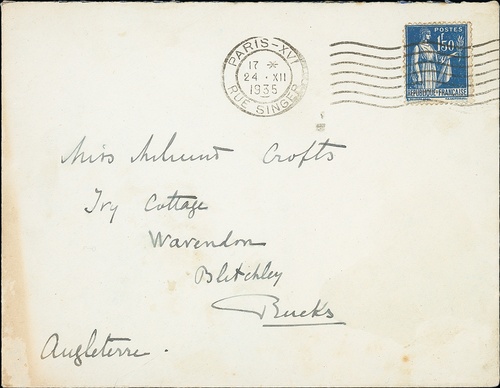 PARIS-XVI
17 *
24 • XII
1935
RUE SINGER
POSTES
1f50
RÉPUBLIQUE-FRANÇAISE
Miss Crofts
Ivy Cottage
Wavendon
Bletchley
Bucks
Angleterre.